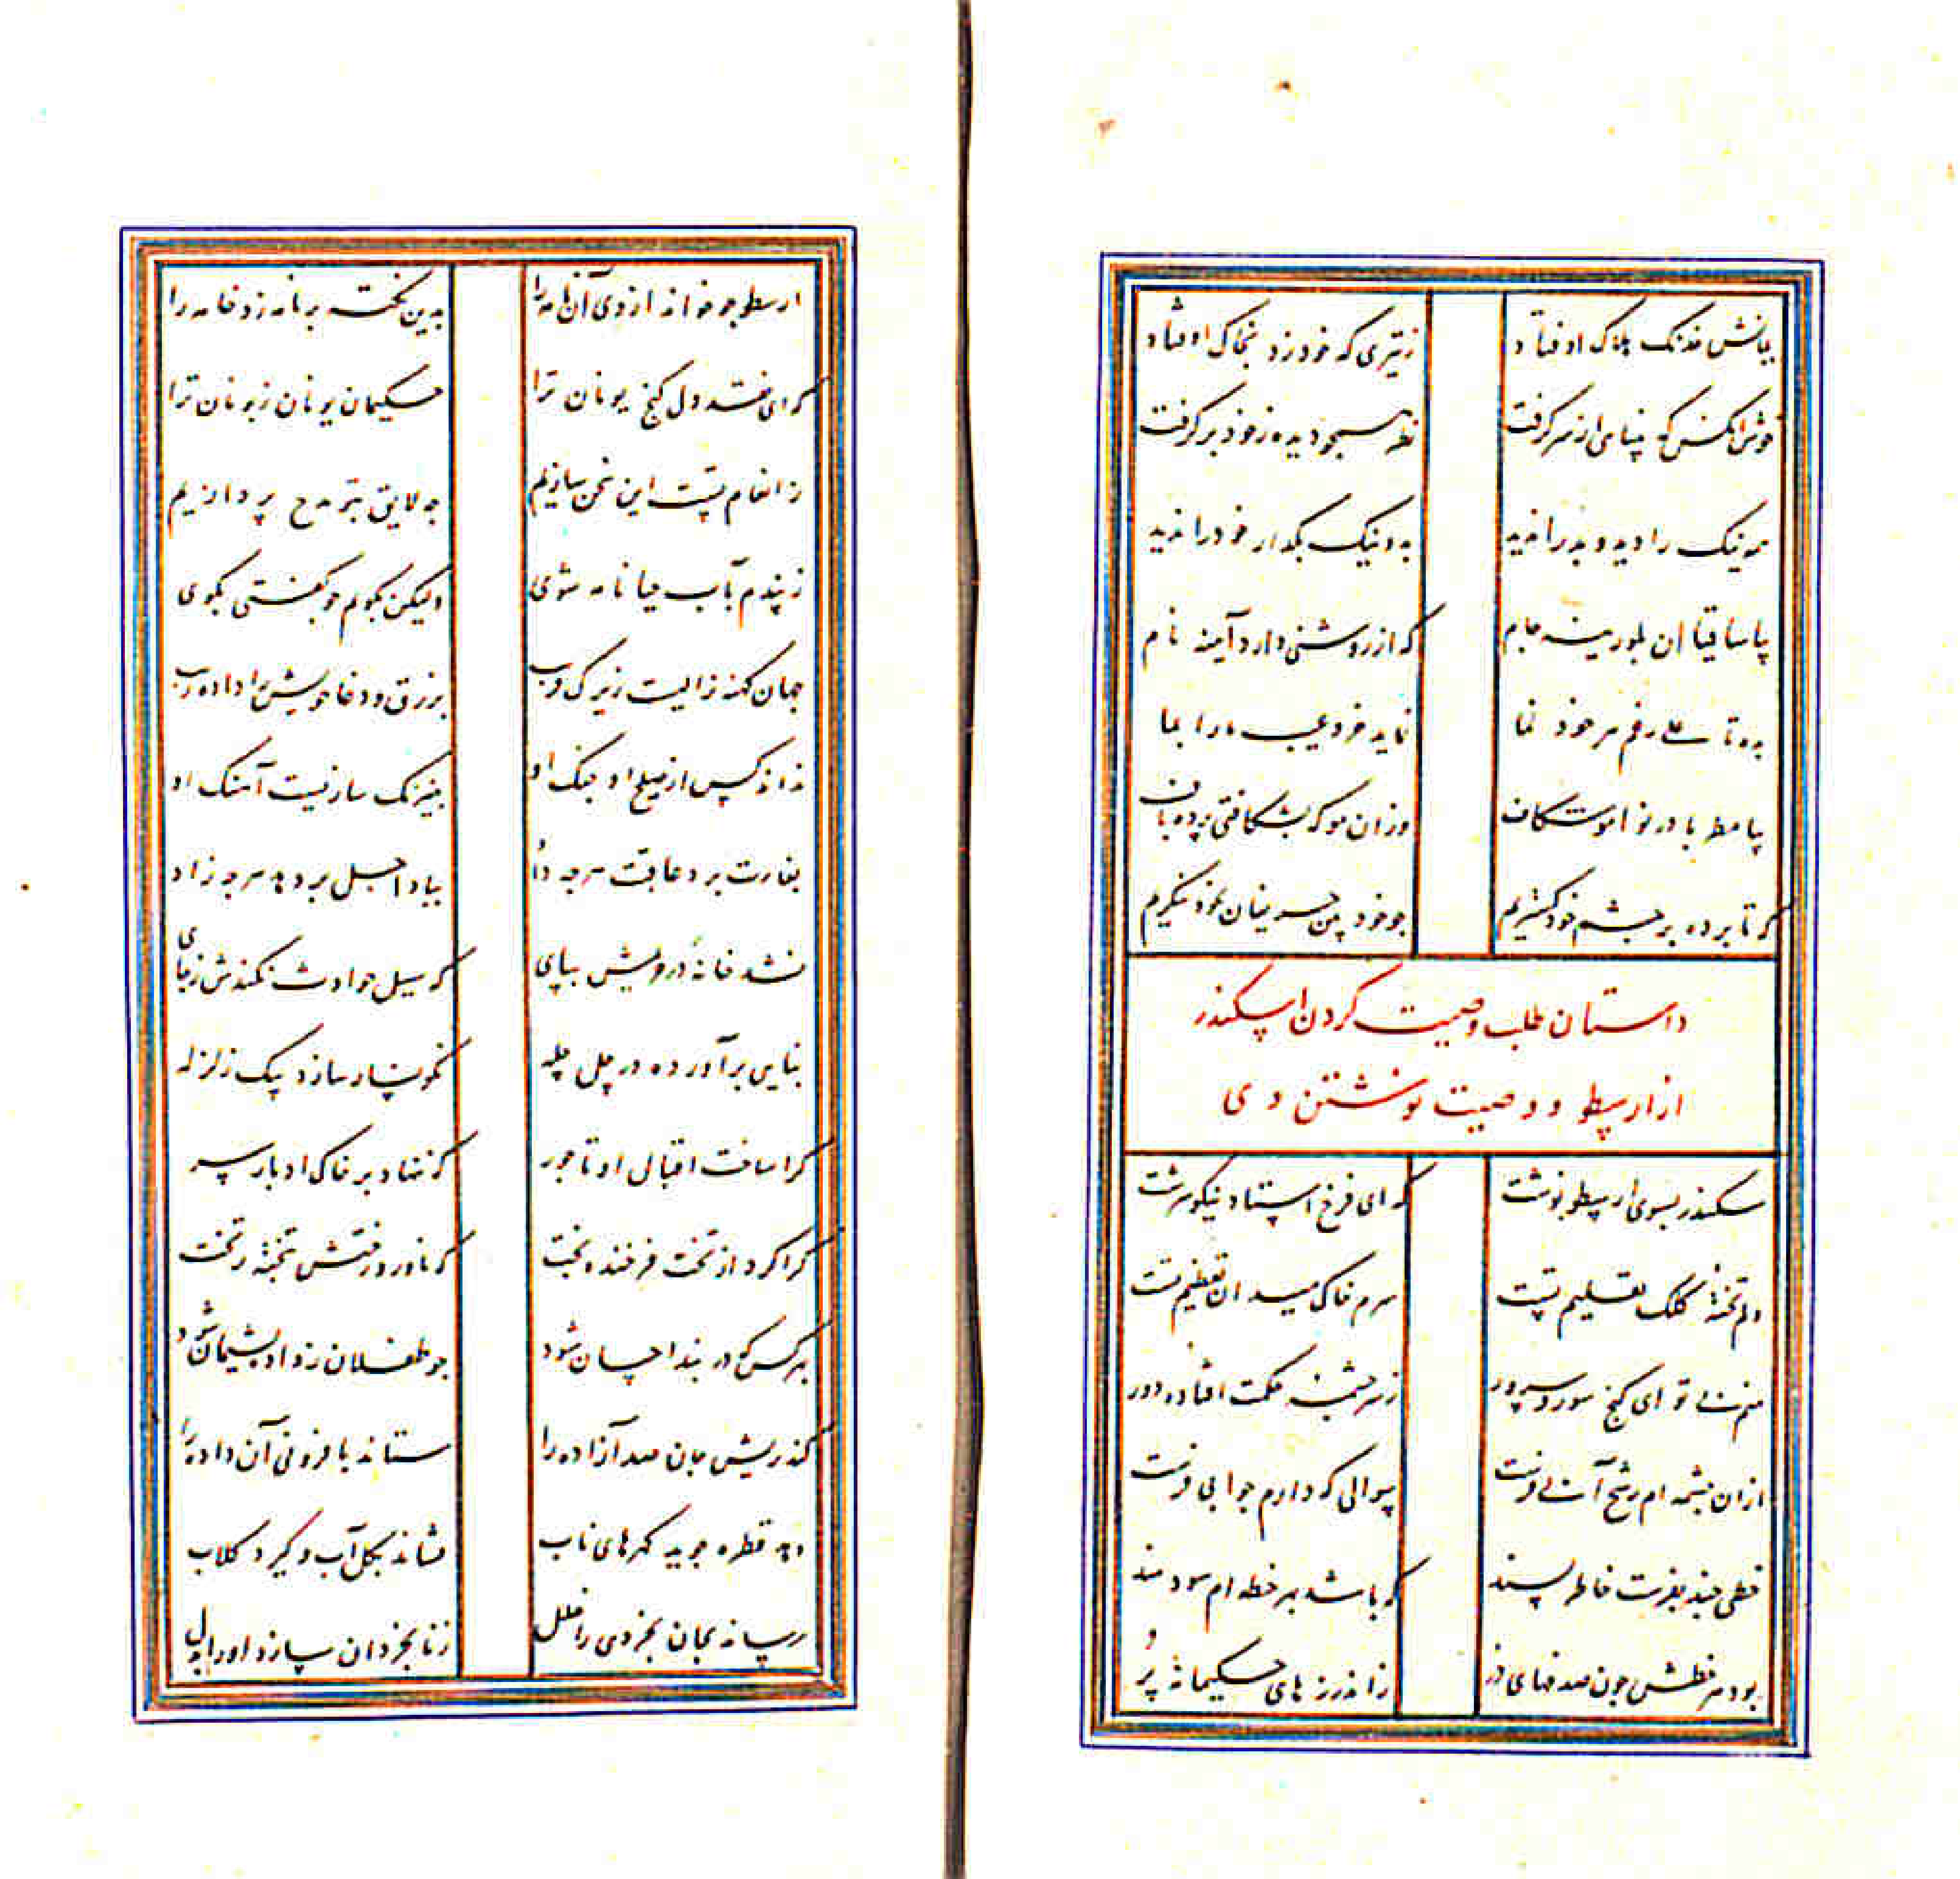 بجانش خدنک هلاک اوفتاد ز تیری که خود زد بخاک اوفتاد
خوش انکس که بینایی از سر کرفت نظر سبجو دیده ز خود بر کرفت
همه نیک را دید و بد را ندید بد و نیک بکذار خود را ندید
بیا ساقیا ان بلورینه جام که از روشنی دارد آینه نام
بده تا علی رغم هر خود نما نماید خرد عیب ما را بما
بیا مطربا در نوا موشکاف وزان مو که بشکافتی پرده باف
که تا پرده بر چشم خود کستریم جو خود بین حریفان بخود ننکریم
داستان طلب وصیت کردن اسکندر
از ارسطو و وصیت نوشتن وی
سکندر بسوی ارسطو نوشت که ای فرخ استاد نیکو سرشت
دلم تختهٔ کلک تعلیم تست سرم خاک میدان تعظیم تست
منم بی تو ای کنج سور و سرور ز سرچشمه حکمت افتاده دور
ازان چشمه ام رشح آبی فرست سوالی که دارم جوابی فرست
خطی چند بفرست خاطر پسند که باشد بهر خطه ام سودمند
بود هر خطش جون صدفهای در ز اندرزهای حکیمانه پر
ارسطو جو خواند از وی آن نامه را بدین نکته بر نامه زد خامه را
که ای نقد دل کنج یونان ترا حکیمان یونان زبونان ترا
ز انعام تست این سخن سازیم جه لایق بتو مدح پردازیم
ز پندم بآب حیا نامه شوی ولیکن بکویم جو کفتی بکوی
جهان کنده زالیست زیرک فریب بزرق و دغا خویش را داده زیب
نداند کس از صلح او جنک او بنیرنک سازیست آهنک او
بغارت برد عاقبت هرجه داد بباد اجل بر دهد هرجه زاد
نشد خانهٔ در و بیش بپای که سیل حوادث نکندش ز جای
بنایی برآورده در چل چله نکونسار سازد بیک زلزله
کرا ساخت اقبال او تاجور که ننهاد بر خاک ادبار سر
کرا کرد از تخت فرخنده بخت که ناورد رفتش بتختهٔ ز تخت
بهر کس که در بند احسان شود جو طفلان زداد پشیمان شود
کند ریش جان صد آزاده را ستاند بافزونی آن داده را
دهد قطره جوید کهرهای ناب فشاند بکل آب و کیرد کلاب
رساند بجان بخردی را خلل ز نابخردان سازد او را بدل